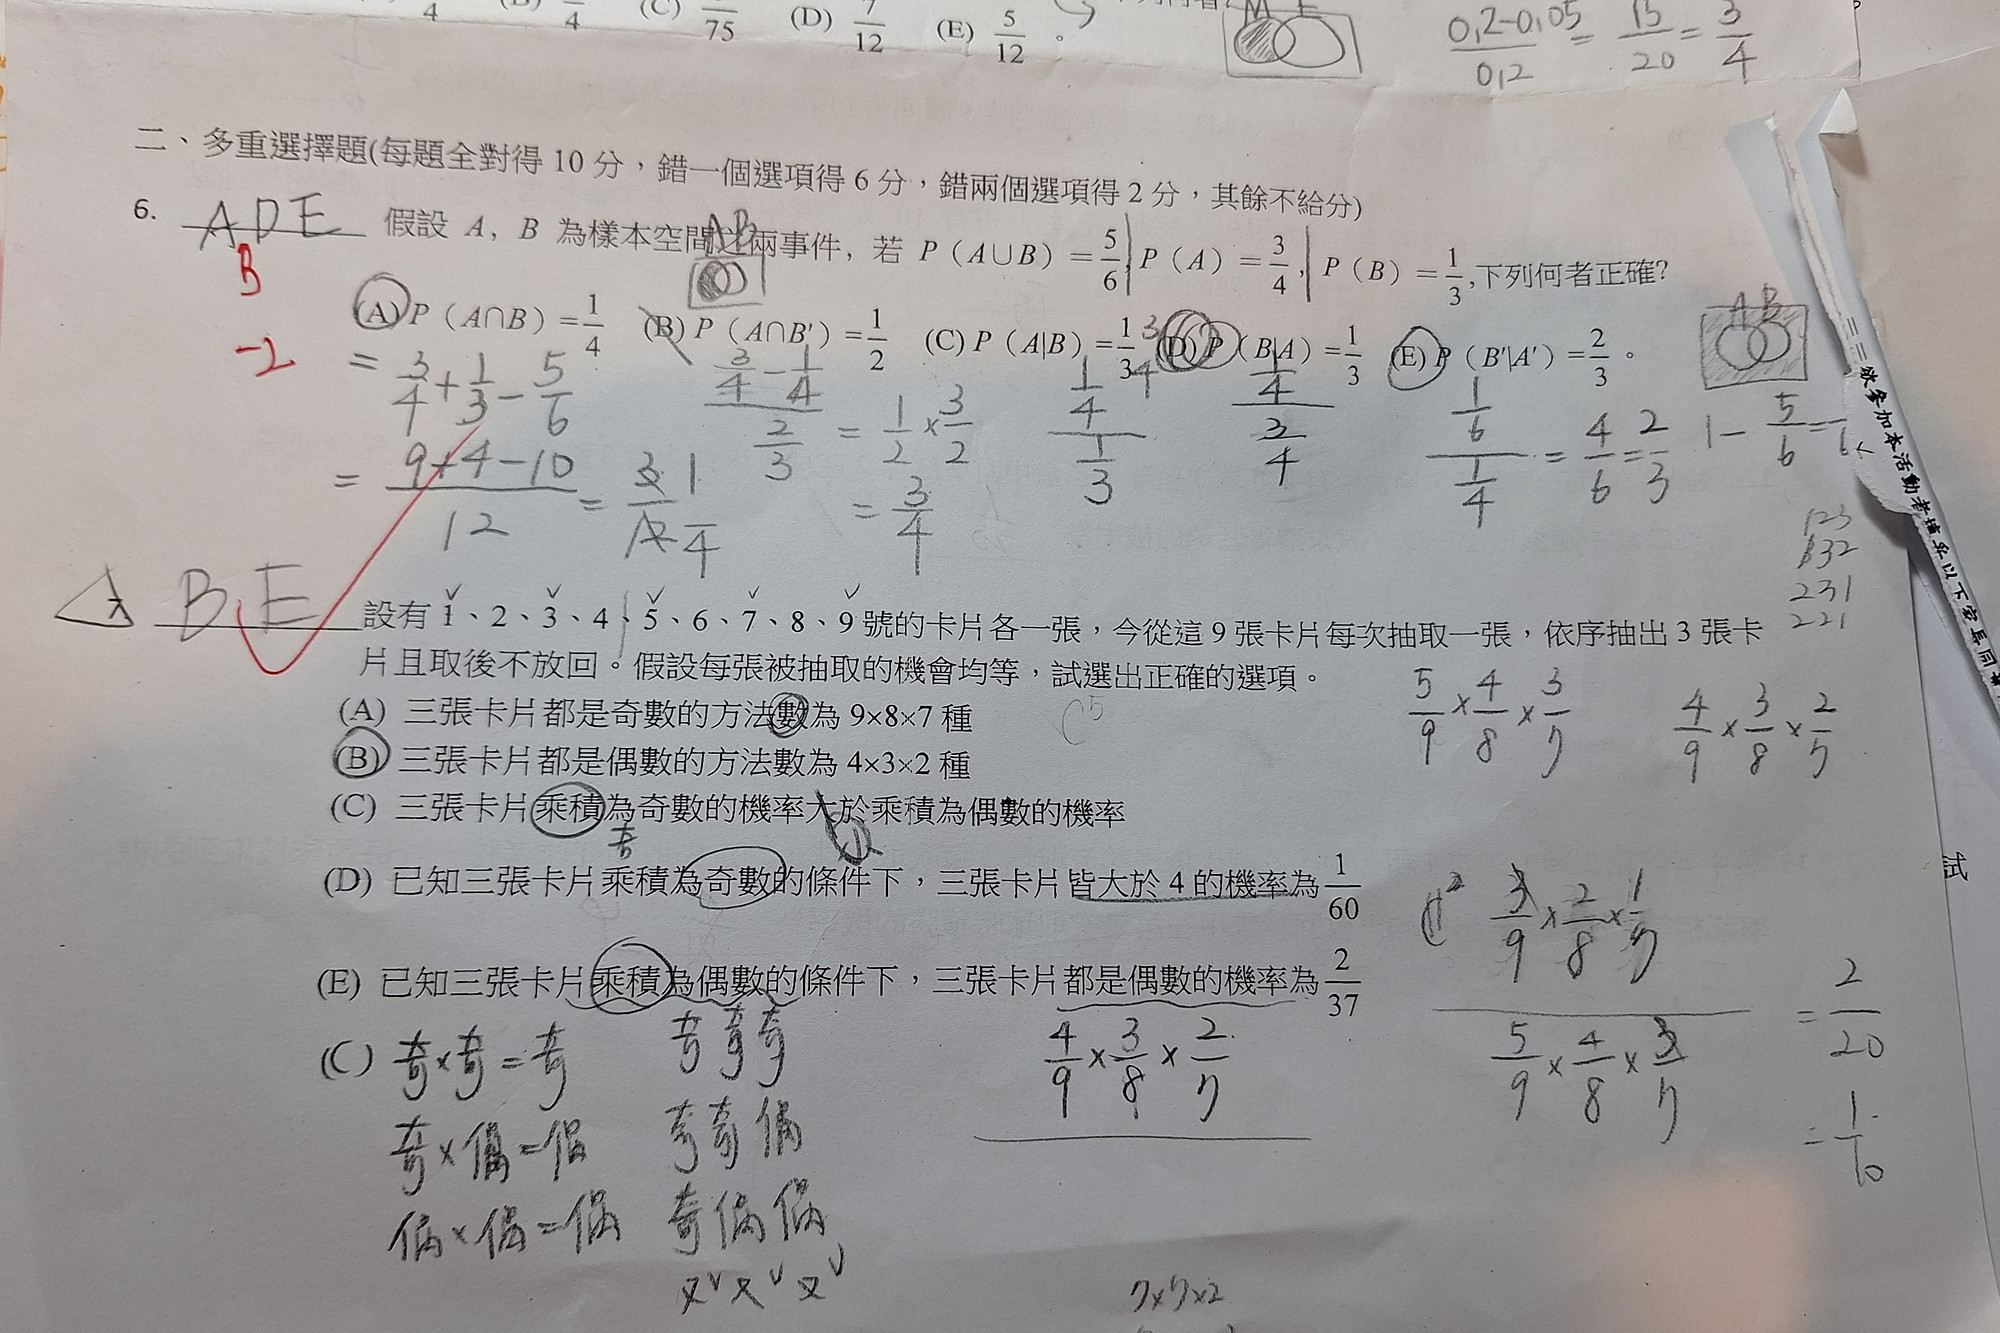 (C) 75 (D) 7/12 (E) 5/12 。
0.2-0.05/0.2 = 15/20 = 3/4
二、多重選擇題(每題全對得 10 分，錯一個選項得 6 分，錯兩個選項得 2 分，其餘不給分)
6. ADE 假設 A, B 為樣本空間之兩事件, 若 P(A∪B)=5/6, P(A)=3/4, P(B)=1/3,下列何者正確?
B
-2
A B
(A) P(A∩B)=1/4 (B) P(A∩B')=1/2 (C) P(A|B)=1/3 (D) P(B|A)=1/3 (E) P(B'|A')=2/3 。
A B
= 3/4+1/3-5/6
= 9+4-10/12 = 3/12 1/4
3/4-1/4 / 2/3 = 1/2×3/2
= 3/4
1/4 / 1/3
3/4
1/4 / 3/4
1/6 / 1/4 = 4/6 = 2/3
1-5/6=
123
132
231
221
7. BE 設有 1、2、3、4、5、6、7、8、9 號的卡片各一張，今從這 9 張卡片每次抽取一張，依序抽出 3 張卡
片且取後不放回。假設每張被抽取的機會均等，試選出正確的選項。
5/9×4/8×3/7 4/9×3/8×2/7
(A) 三張卡片都是奇數的方法數為 9×8×7 種
(B) 三張卡片都是偶數的方法數為 4×3×2 種
(C) 三張卡片乘積為奇數的機率大於乘積為偶數的機率
奇 小
(D) 已知三張卡片乘積為奇數的條件下，三張卡片皆大於 4 的機率為 1/60
(E) 已知三張卡片乘積為偶數的條件下，三張卡片都是偶數的機率為 2/37
3/9×2/8×1/7 / 5/9×4/8×3/7 = 2/20
= 1/10
4/9×3/8×2/7
(C) 奇×奇=奇 奇奇奇
奇×偶=偶 奇奇偶
偶×偶=偶 奇偶偶
7×7×2
欲參加本活動者
試